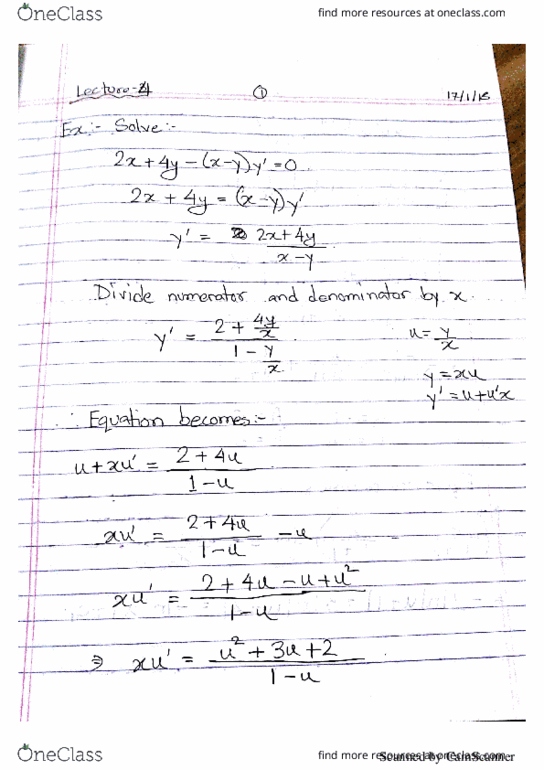 OneClass find more resources at oneclass.com
Lecture-4 1 17/1/18
Ex:- Solve:-
2x+4y-(x-y)y'=0
2x+4y=(x-y)y'
y' = 2x+4y / x-y
Divide numerator and denominator by x.
y' = 2+4y/x / 1-y/x u=y/x
y=xu
y'=u+u'x
∴ Equation becomes:-
u+xu' = 2+4u / 1-u
xu' = 2+4u / 1-u - u
xu' = 2+4u-u+u² / 1-u
⇒ xu' = u²+3u+2 / 1-u
OneClass find more resources at oneclass.com
Scanned by CamScanner